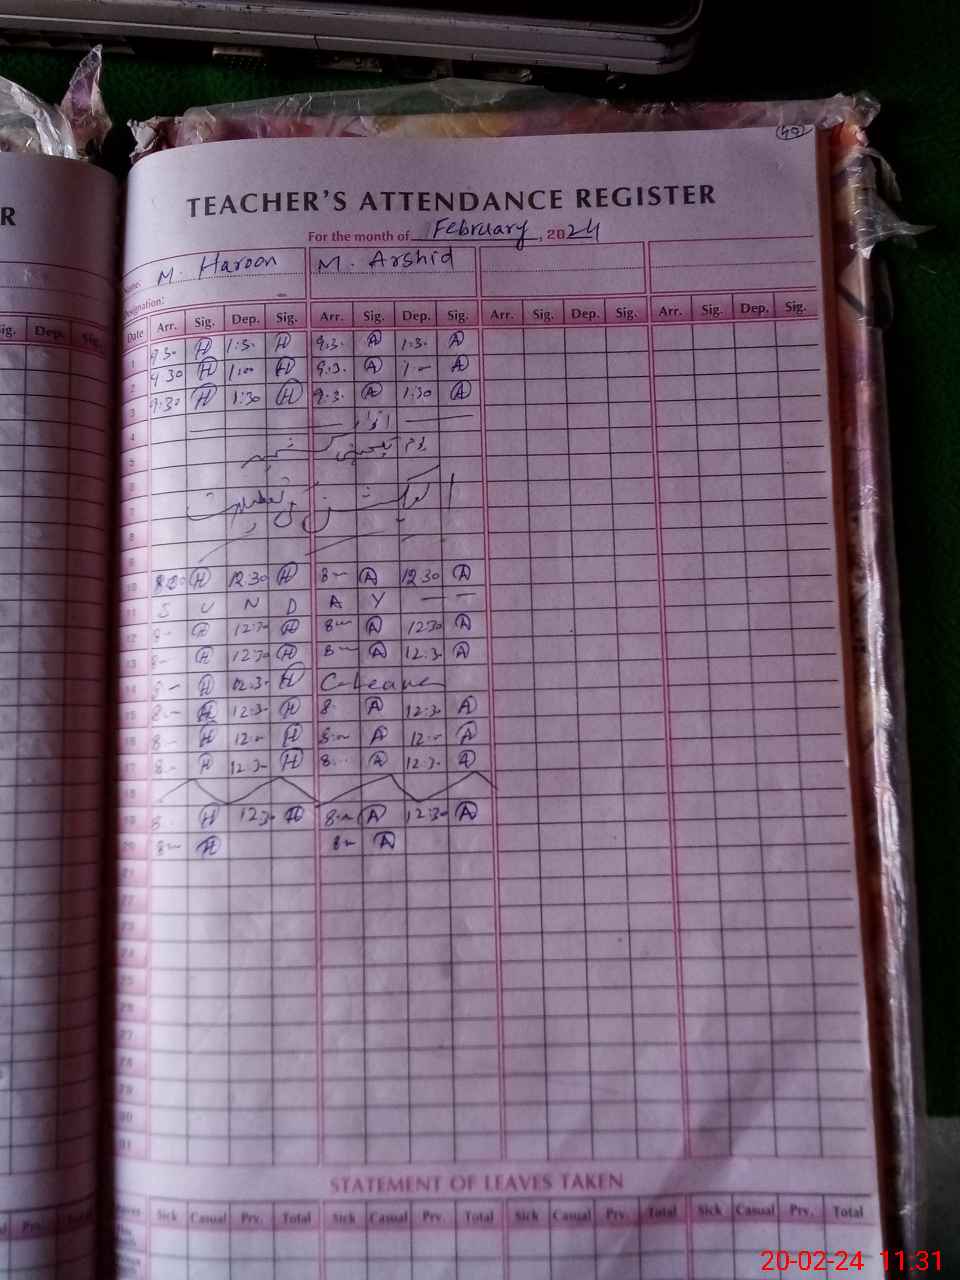 49
TEACHER'S ATTENDANCE REGISTER
R
For the month of February, 2024
Name: M. Haroon M. Arshid
Designation:
Sig. Dep. Sig. Date Arr. Sig. Dep. Sig. Arr. Sig. Dep. Sig. Arr. Sig. Dep. Sig. Arr. Sig. Dep. Sig.
1 9.30 H 1:30 H 9.30 A 1:30 A
2 9.30 H 1:00 H 9.30 A 1:00 A
3 9:30 H 1:30 H 9.30 A 1:30 A
4 اتوار
5
6
7
8
9
10 8:00 H 12.30 H 8:00 A 12.30 A
11 S U N D A Y
12 8:00 H 12:30 H 8:00 A 12:30 A
13 8:00 H 12:30 H 8:00 A 12:30 A
14 8:00 H 12:30 H C-Leave
15 8:00 H 12:30 H 8: A 12:30 A
16 8:00 H 12:00 H 8:00 A 12:00 A
17 8:00 H 12:30 H 8:00 A 12:30 A
18
19 8: H 12:30 H 8:00 A 12:30 A
20 8:00 H 8:00 A
21
22
23
24
25
26
27
28
29
30
31
STATEMENT OF LEAVES TAKEN
Prv. Total Leaves Sick Casual Prv. Total Sick Casual Prv. Total Sick Casual Prv. Total Sick Casual Prv. Total
20-02-24 11:31